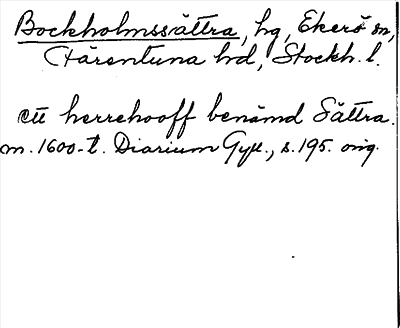 Bockholmssättra, hg, Ekerö sn,
Färentuna hd, Stockh. l.
ett herrehooff benämd Sättra.
m. 1600-t. Diarium Gyll., s. 195. orig.